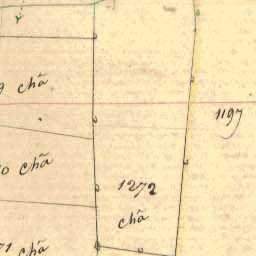 9 chã
1197
0 chã
1272
chã
71 chã